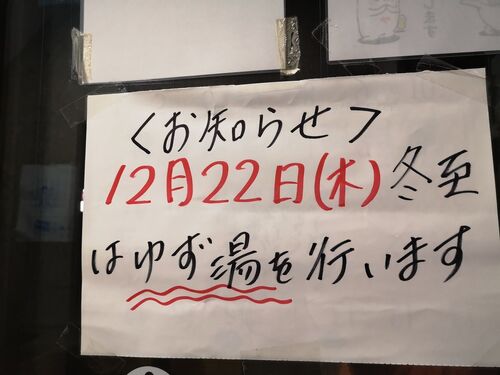 〈お知らせ〉
12月22日(木)冬至
はゆず湯を行います